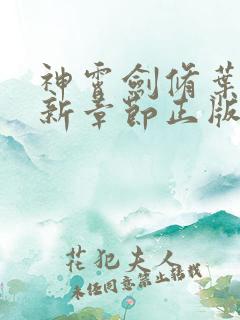 神霄劍脩葉
新章節正版
花犯夫人
未经同意禁止转载